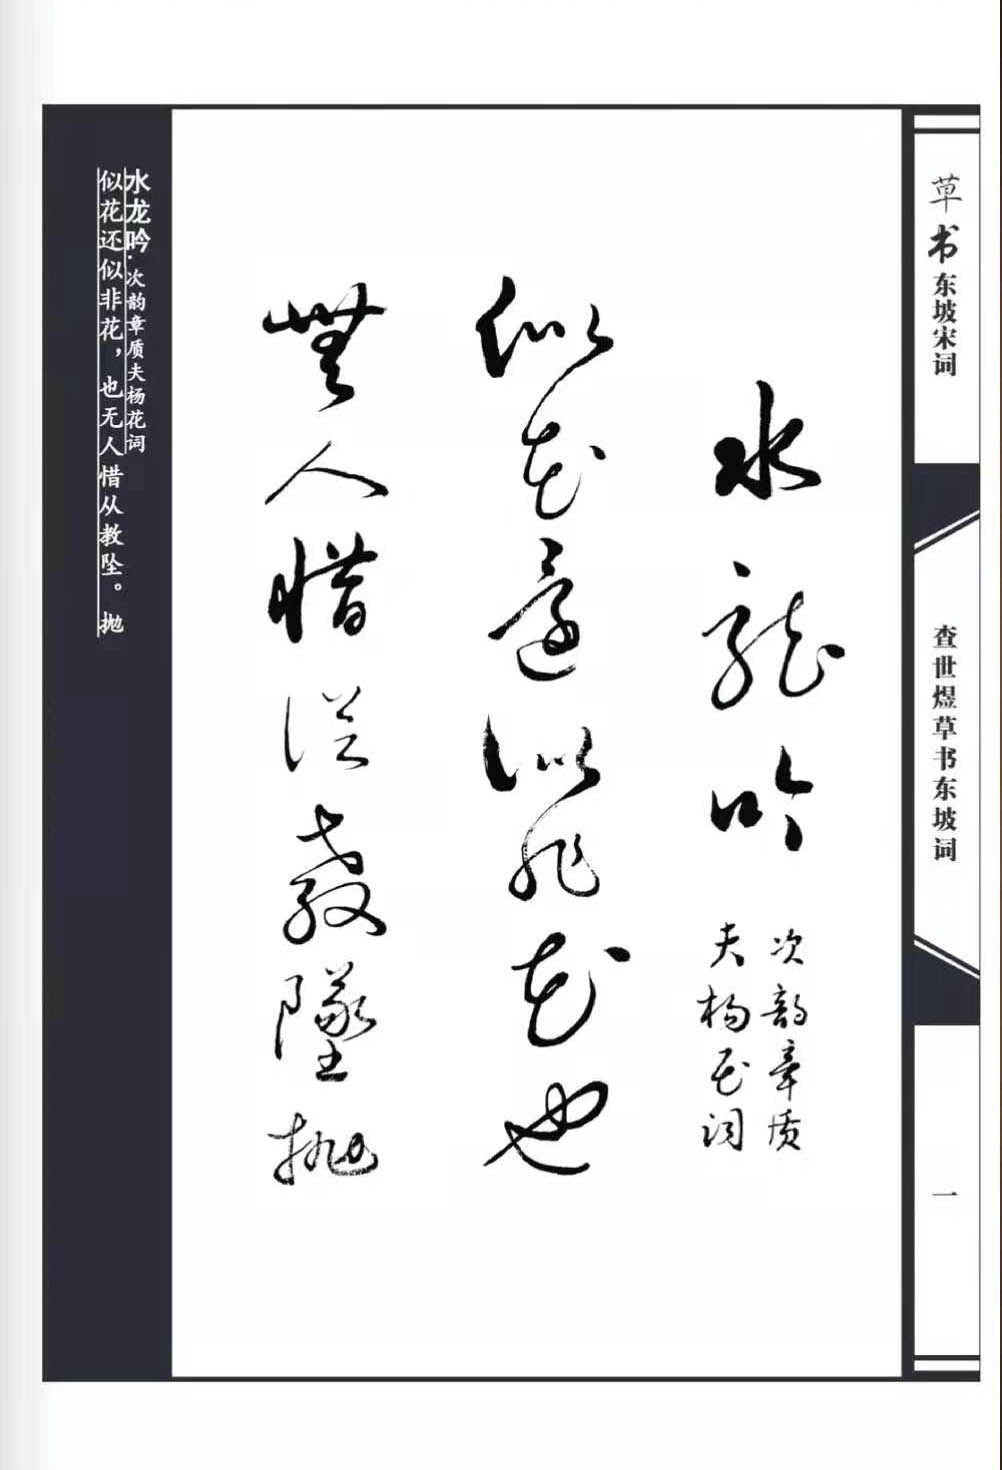 草书东坡宋词
查世煜草书东坡词
一
水龍吟
次韵章质
夫杨花词
似花還似非花也
無人惜從教墜抛
水龙吟·次韵章质夫杨花词
似花还似非花，也无人惜从教坠。抛